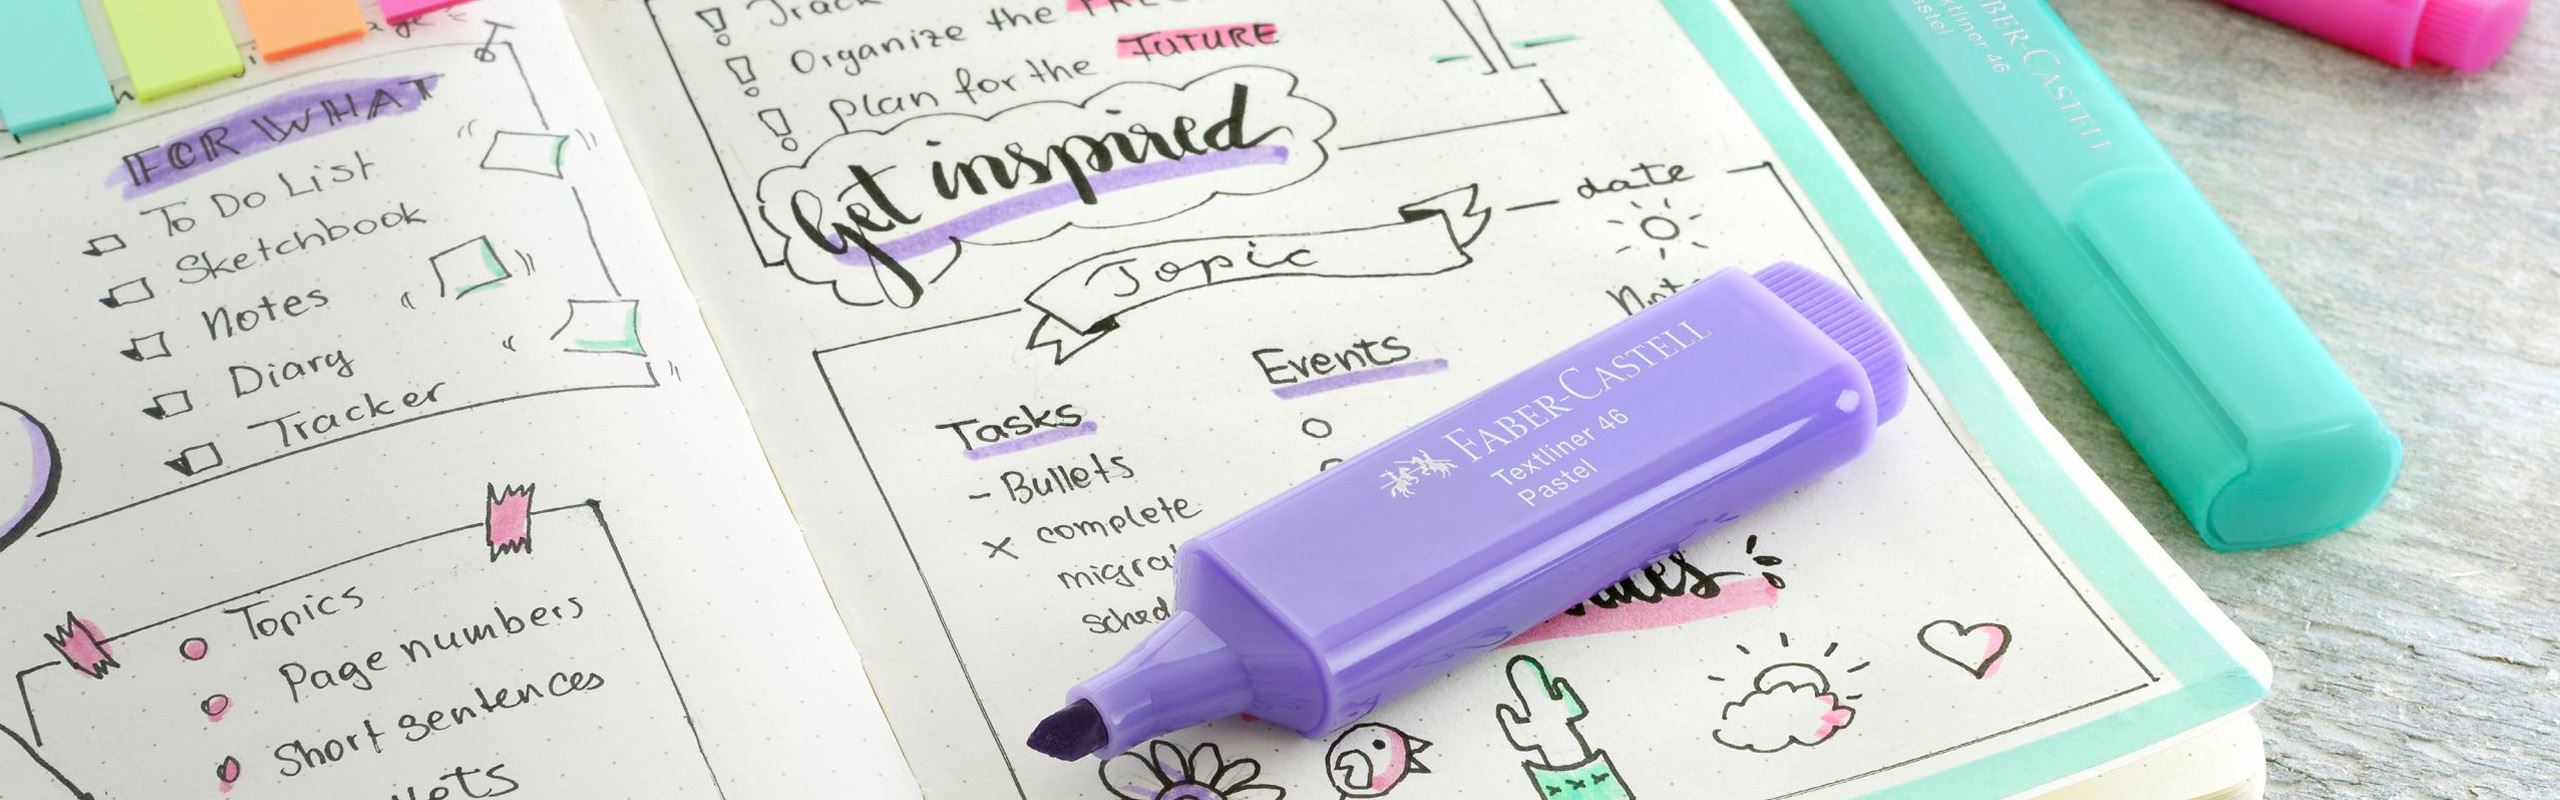 FOR WHAT
To Do List
Sketchbook
Notes
Diary
Tracker
Topics
Page numbers
Short sentences
Track
Organize the
plan for the FUTURE
Get inspired
Topic
date
Events
Tasks
- Bullets
x complete
FABER-CASTELL
Textliner 46
Pastel
FABER-CASTELL
Textliner 46
Pastel